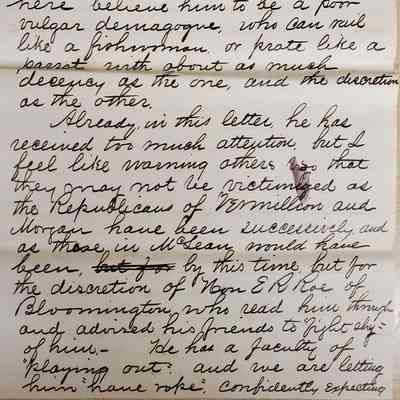 here believe him to be a poor
vulgar demagogue, who can rail
like a fishwoman, or prate like a
parrot with about as much
decency as the one, and the discretion
as the other.
Already, in this letter, he has
received too much attention, but I
feel like warning others so that
they may not be victimized as
the Republicans of Vermillion and
Morgan have been successively, and
as those in McLean would have
been, but for by this time, but for
the discretion of Hon E. R. Roe of
Bloomington, who read him through
and advised his friends to "fight shy"
of him. - He has a faculty of
"playing out": and we are letting
him "have rope", confidently expecting